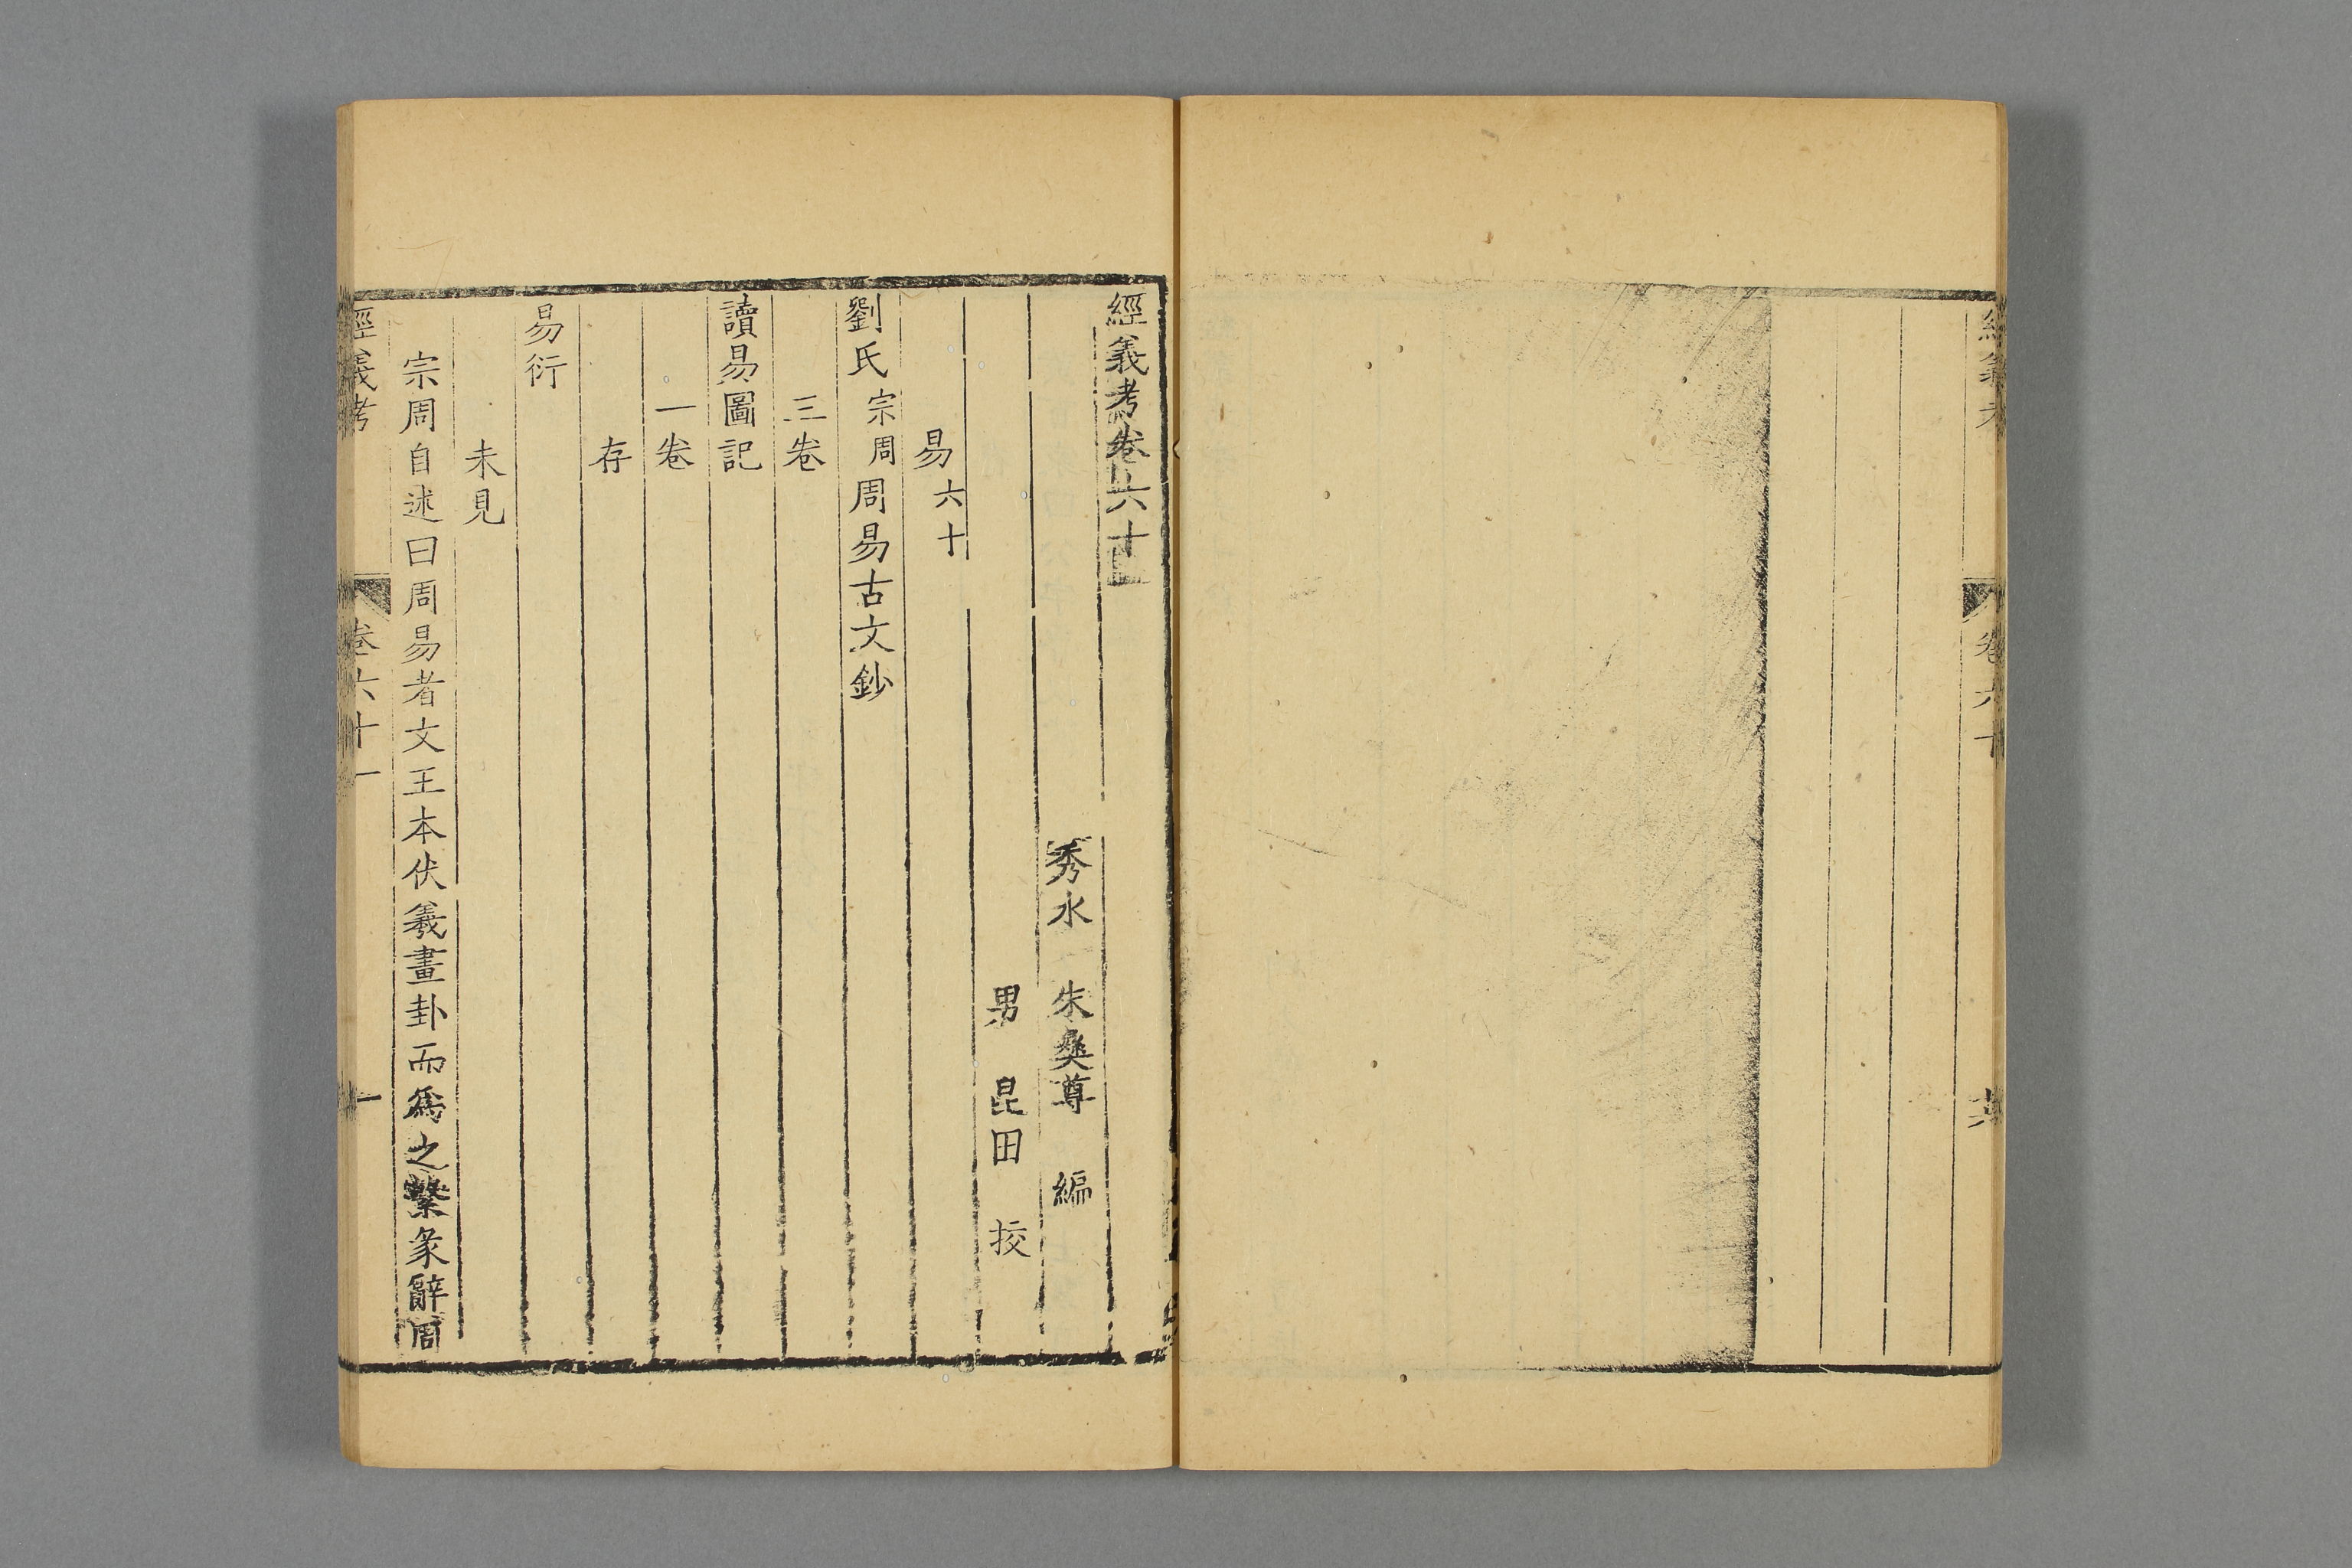 經義考
卷六十
經義考卷六十
秀水　朱彝尊　編
男　昆田　挍
易六十
劉氏宗周周易古文鈔
三卷
讀易圖記
一卷
存
易衍
未見
宗周自述曰周易者文王本伏羲畫卦而爲之繫彖辭周
經義考
卷六十一
一